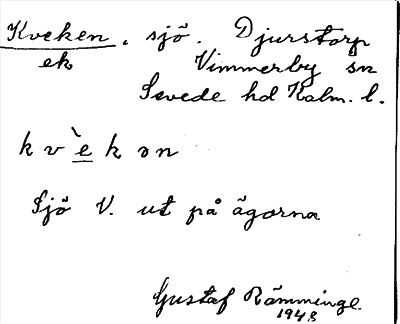 Kveken, sjö. Djurstorp
ek Vimmerby sn
Sevede hd Kalm. l.
k v è k ə n
Sjö V. ut på ägorna
Gustaf Rämminge
1948